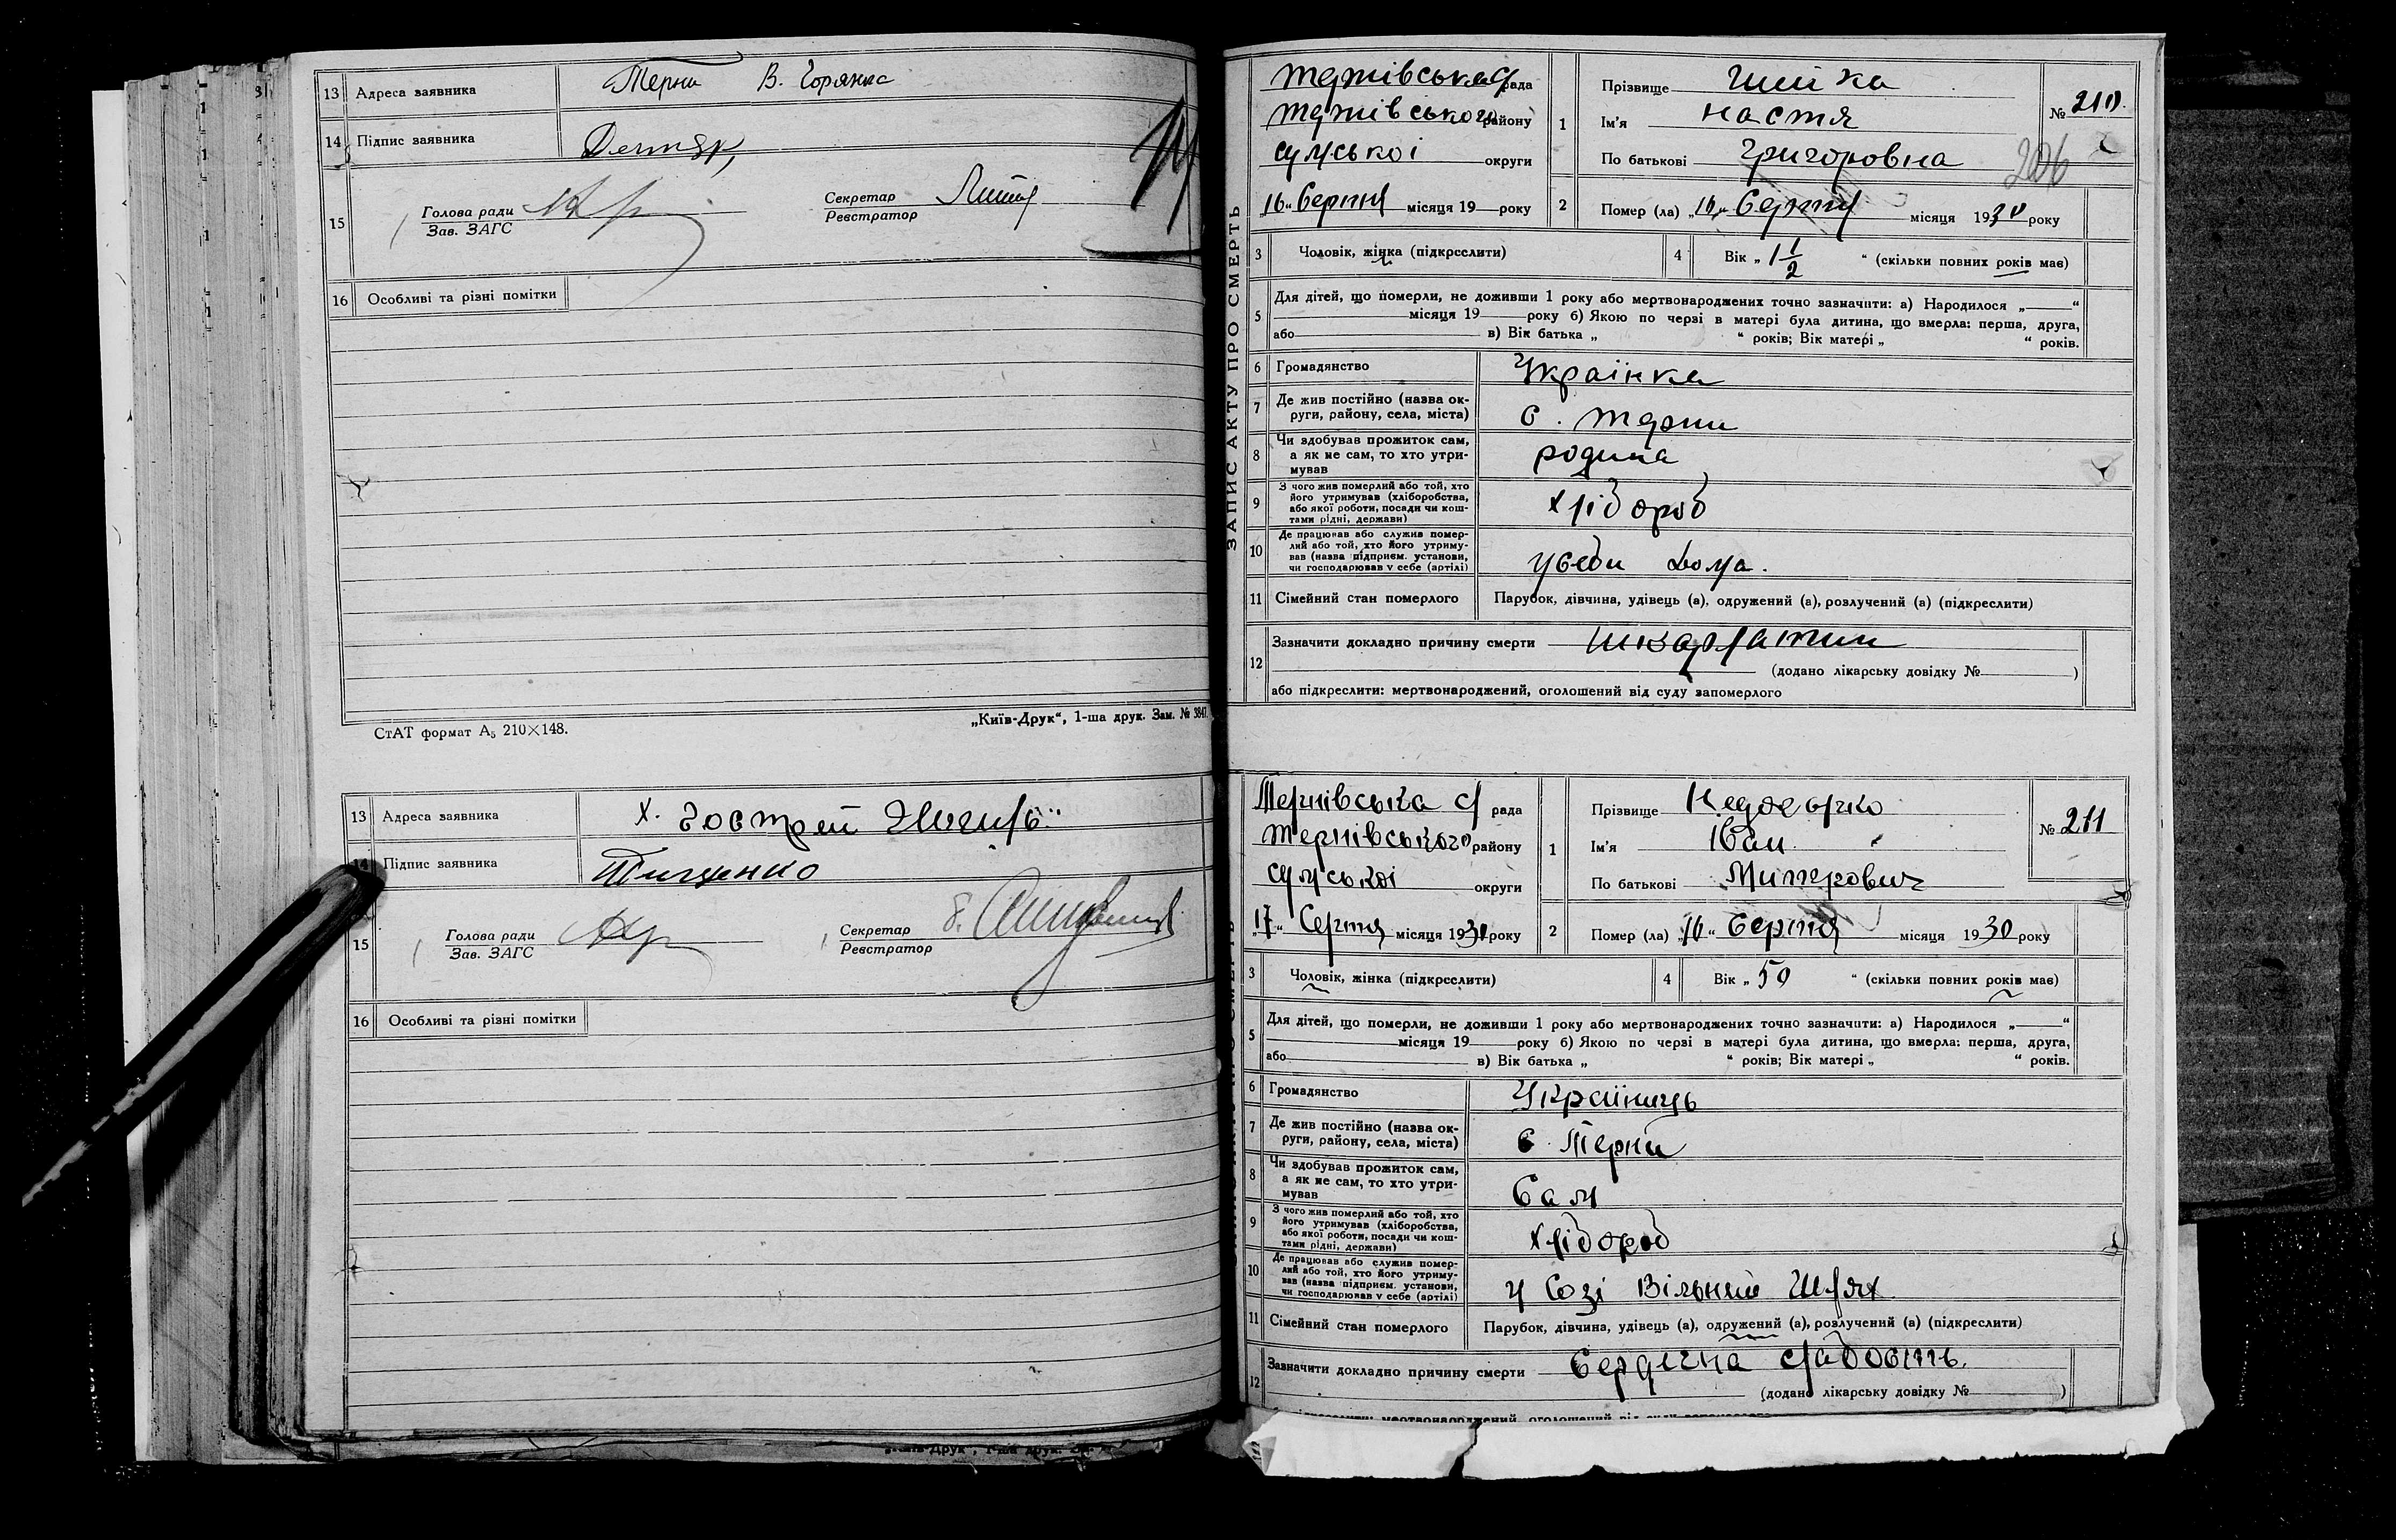 13 Адреса заявника Терни В. Горянка
14 Підпис заявника
15 Голова ради
Зав. ЗАГС
Секретар
Реєстратор
16 Особливі та різні помітки
СтАТ формат А5 210×148.
„Київ-Друк“, 1-ша друк. Зам. № 3847.
13 Адреса заявника х.
14 Підпис заявника Тищенко
15 Голова ради
Зав. ЗАГС
Секретар
Реєстратор
16 Особливі та різні помітки
„Київ-Друк“, 1-ша друк.
ЗАПИС АКТУ ПРО СМЕРТЬ
Тернівська с/рада
Тернівського району
Сумської округи
„16“ Серпня місяця 19 року
1 Прізвище Шийка
Ім'я Настя
По батькові Григоровна
№ 210.
206
2 Помер (ла) „16“ Серпня місяця 1930 року
3 Чоловік, жінка (підкреслити)
4 Вік „1 1/2“ (скільки повних років має)
5 Для дітей, що померли, не доживши 1 року або мертвонароджених точно зазначити: а) Народилося „ “
місяця 19 року б) Якою по черзі в матері була дитина, що вмерла: перша, друга,
або в) Вік батька „ “ років; Вік матері „ “ років.
6 Громадянство Українка
7 Де жив постійно (назва ок-
руги, району, села, міста) с. Терни
8 Чи здобував прожиток сам,
а як не сам, то хто утри-
мував родина
9 З чого жив померлий або той, хто
його утримував (хліборобства,
або якої роботи, посади чи кош-
тами рідні, держави) хлібороб
10 Де працював або служив помер-
лий або той, хто його утриму-
вав (назва підприєм. установи,
чи господарював у себе (артілі) усеби дома.
11 Сімейний стан померлого Парубок, дівчина, удівець (а), одружений (а), розлучений (а) (підкреслити)
12 Зазначити докладно причину смерти шкарлатин
(додано лікарську довідку № )
або підкреслити: мертвонароджений, оголошений від суду запомерлого
Тернівська с/рада
Тернівського району
Сумської округи
„17“ Серпня місяця 1930 року
1 Прізвище
Ім'я Іван
По батькові
№ 211
2 Помер (ла) „16“ Серпня місяця 1930 року
3 Чоловік, жінка (підкреслити)
4 Вік „50“ (скільки повних років має)
5 Для дітей, що померли, не доживши 1 року або мертвонароджених точно зазначити: а) Народилося „ “
місяця 19 року б) Якою по черзі в матері була дитина, що вмерла: перша, друга,
або в) Вік батька „ “ років; Вік матері „ “ років.
6 Громадянство Українець
7 Де жив постійно (назва ок-
руги, району, села, міста) с. Терни
8 Чи здобував прожиток сам,
а як не сам, то хто утри-
мував Сам
9 З чого жив померлий або той, хто
його утримував (хліборобства,
або якої роботи, посади чи кош-
тами рідні, держави) хлібороб
10 Де працював або служив помер-
лий або той, хто його утриму-
вав (назва підприєм. установи,
чи господарював у себе (артілі) у Созі Вільний Шлях
11 Сімейний стан померлого Парубок, дівчина, удівець (а), одружений (а), розлучений (а) (підкреслити)
12 Зазначити докладно причину смерти Сердечна слабость.
(додано лікарську довідку № )